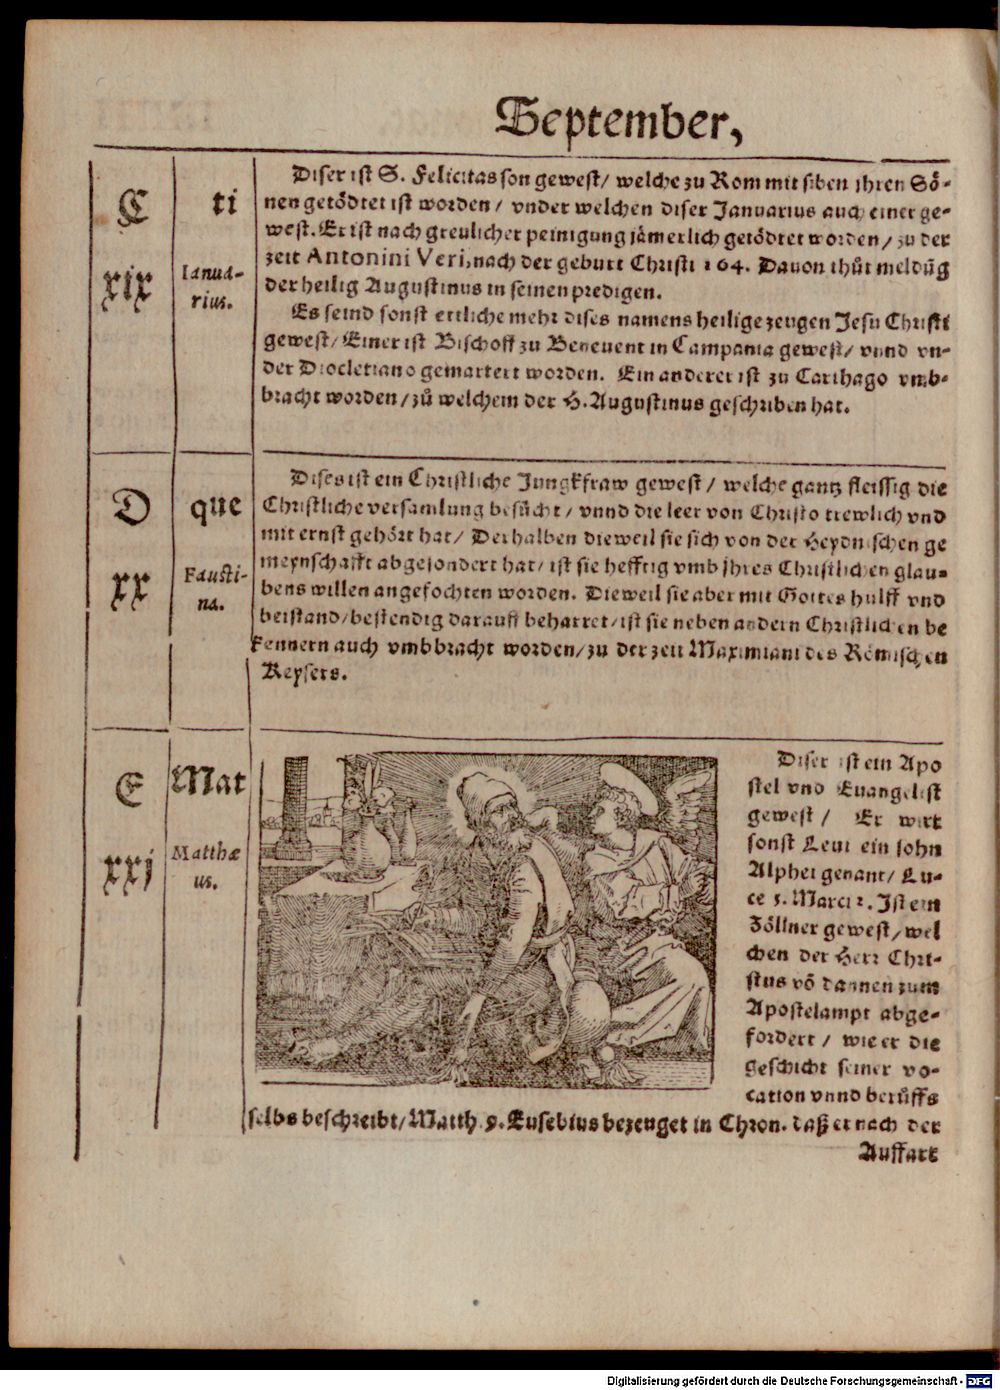 September,
C
ti
xix
Ianua-
rius.
Diser ist S. Felicitas son gewest/ welche zu Rom mit siben ihren Sö-
nen getödtet ist worden/ vnder welchen diser Januarius auch einer ge-
west. Er ist nach greulicher peinigung jämerlich getödtet worden/ zu der
zeit Antonini Veri, nach der geburt Christi 164. Dauon thůt meldūg
der heilig Augustinus in seinen predigen.
Es seind sonst ettliche mehr dises namens heilige zeugen Jesu Christi
gewest/ Einer ist Bischoff zu Beneuent in Campania gewest/ vnnd vn-
der Diocletiano gemartert worden. Ein anderer ist zu Carthago vmb-
bracht worden/ zů welchem der H. Augustinus geschriben hat.
D
que
xx
Fausti-
na.
Dises ist ein Christliche Jungkfraw gewest/ welche gantz fleissig die
Christliche versamlung besůcht/ vnnd die leer von Christo trewlich vnd
mit ernst gehört hat/ Derhalben dieweil sie sich von der Heydnischen ge
meynschafft abgesondert hat/ ist sie hefftig vmb jhres Christlichen glau-
bens willen angefochten worden. Dieweil sie aber mit Gottes hülff vnd
beistand/ bestendig darauff beharret/ ist sie neben andern Christlichen be
kennern auch vmbbracht worden/ zu der zeit Maximiani des Römischen
Keysers.
E
Mat
xxj
Matthæ
us.
Diser ist ein Apo
stel vnd Euangelist
gewest/ Er wirt
sonst Leui ein sohn
Alphei genant/ Lu-
ce 5. Marci 2. Ist ein
Zöllner gewest/ wel
chen der Herr Chri-
stus vō dannen zum
Apostelampt abge-
fordert/ wie er die
geschicht seiner vo-
cation vnnd berůffs
selbs beschreibt/ Matth. 9. Eusebius bezeuget in Chron. daß er nach der
Auffart
Digitalisierung gefördert durch die Deutsche Forschungsgemeinschaft - DFG